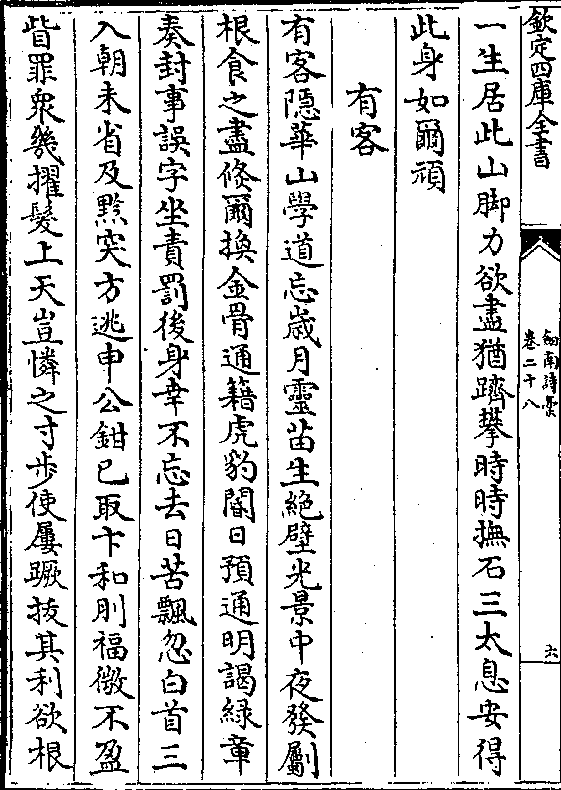 欽定四庫全書
劍南詩槀
卷二十八
六
一生居此山脚力欲盡猶躋攀時時撫石三太息安得
此身如爾頑
有客
有客隱華山學道忘歳月靈苗生絶壁光景中夜發劚
根食之盡倐爾換金骨通籍虎豹闈日預通明謁緑章
奏封事誤字坐責罰後身幸不忘去日苦飄忽白首三
入朝未省及黔突方逃申公鉗已取卞和刖福微不盈
眥罪衆幾擢髪上天豈憐之寸步使屢蹶拔其利欲根